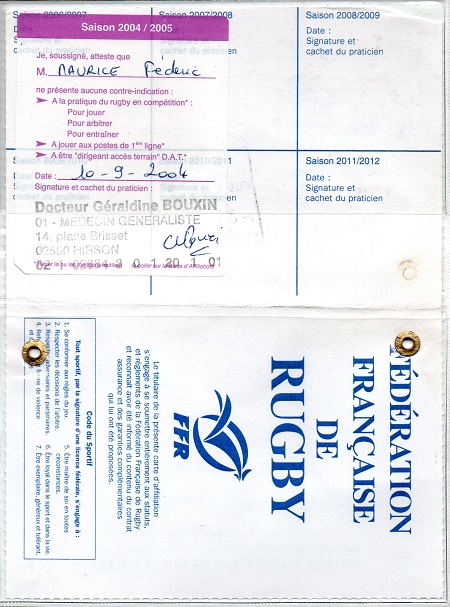 Saison 2006/2007
Saison 2007/2008
Saison 2008/2009
Date :
Signature et
cachet du praticien
Saison 2004 / 2005
Je, soussigné, atteste que
M. MAURICE Féderic
ne présente aucune contre-indication :
➤ A la pratique du rugby en compétition* :
Pour jouer
Pour arbitrer
Pour entraîner
➤ A jouer aux postes de 1ère ligne*
➤ A être "dirigeant accès terrain" D.A.T.*
Date : 10-9-2004
Signature et cachet du praticien :
Docteur Géraldine BOUXIN
01 - MEDECIN GENERALISTE
14, place Brisset
02500 HIRSON
Saison 2010/2011
Saison 2011/2012
Date :
Signature et
cachet du praticien
FÉDÉRATION
FRANÇAISE
DE
RUGBY
FFR
Le titulaire de la présente carte d'affiliation
s'engage à se soumettre entièrement aux statuts,
et règlements de la Fédération Française de Rugby
et reconnaît avoir été informé du contenu du contrat
assurance et des garanties complémentaires
qui lui ont été proposées.
Code du Sportif
Tout sportif, par la signature d'une licence fédérale, s'engage à :
1. Se conformer aux règles du jeu.
2. Respecter les décisions de l'arbitre.
3. Respecter adversaires et partenaires.
4. Refuser toute forme de violence
5. Être maître de soi en toutes
circonstances.
6. Être loyal dans le sport et dans la vie.
7. Être exemplaire, généreux et tolérant.